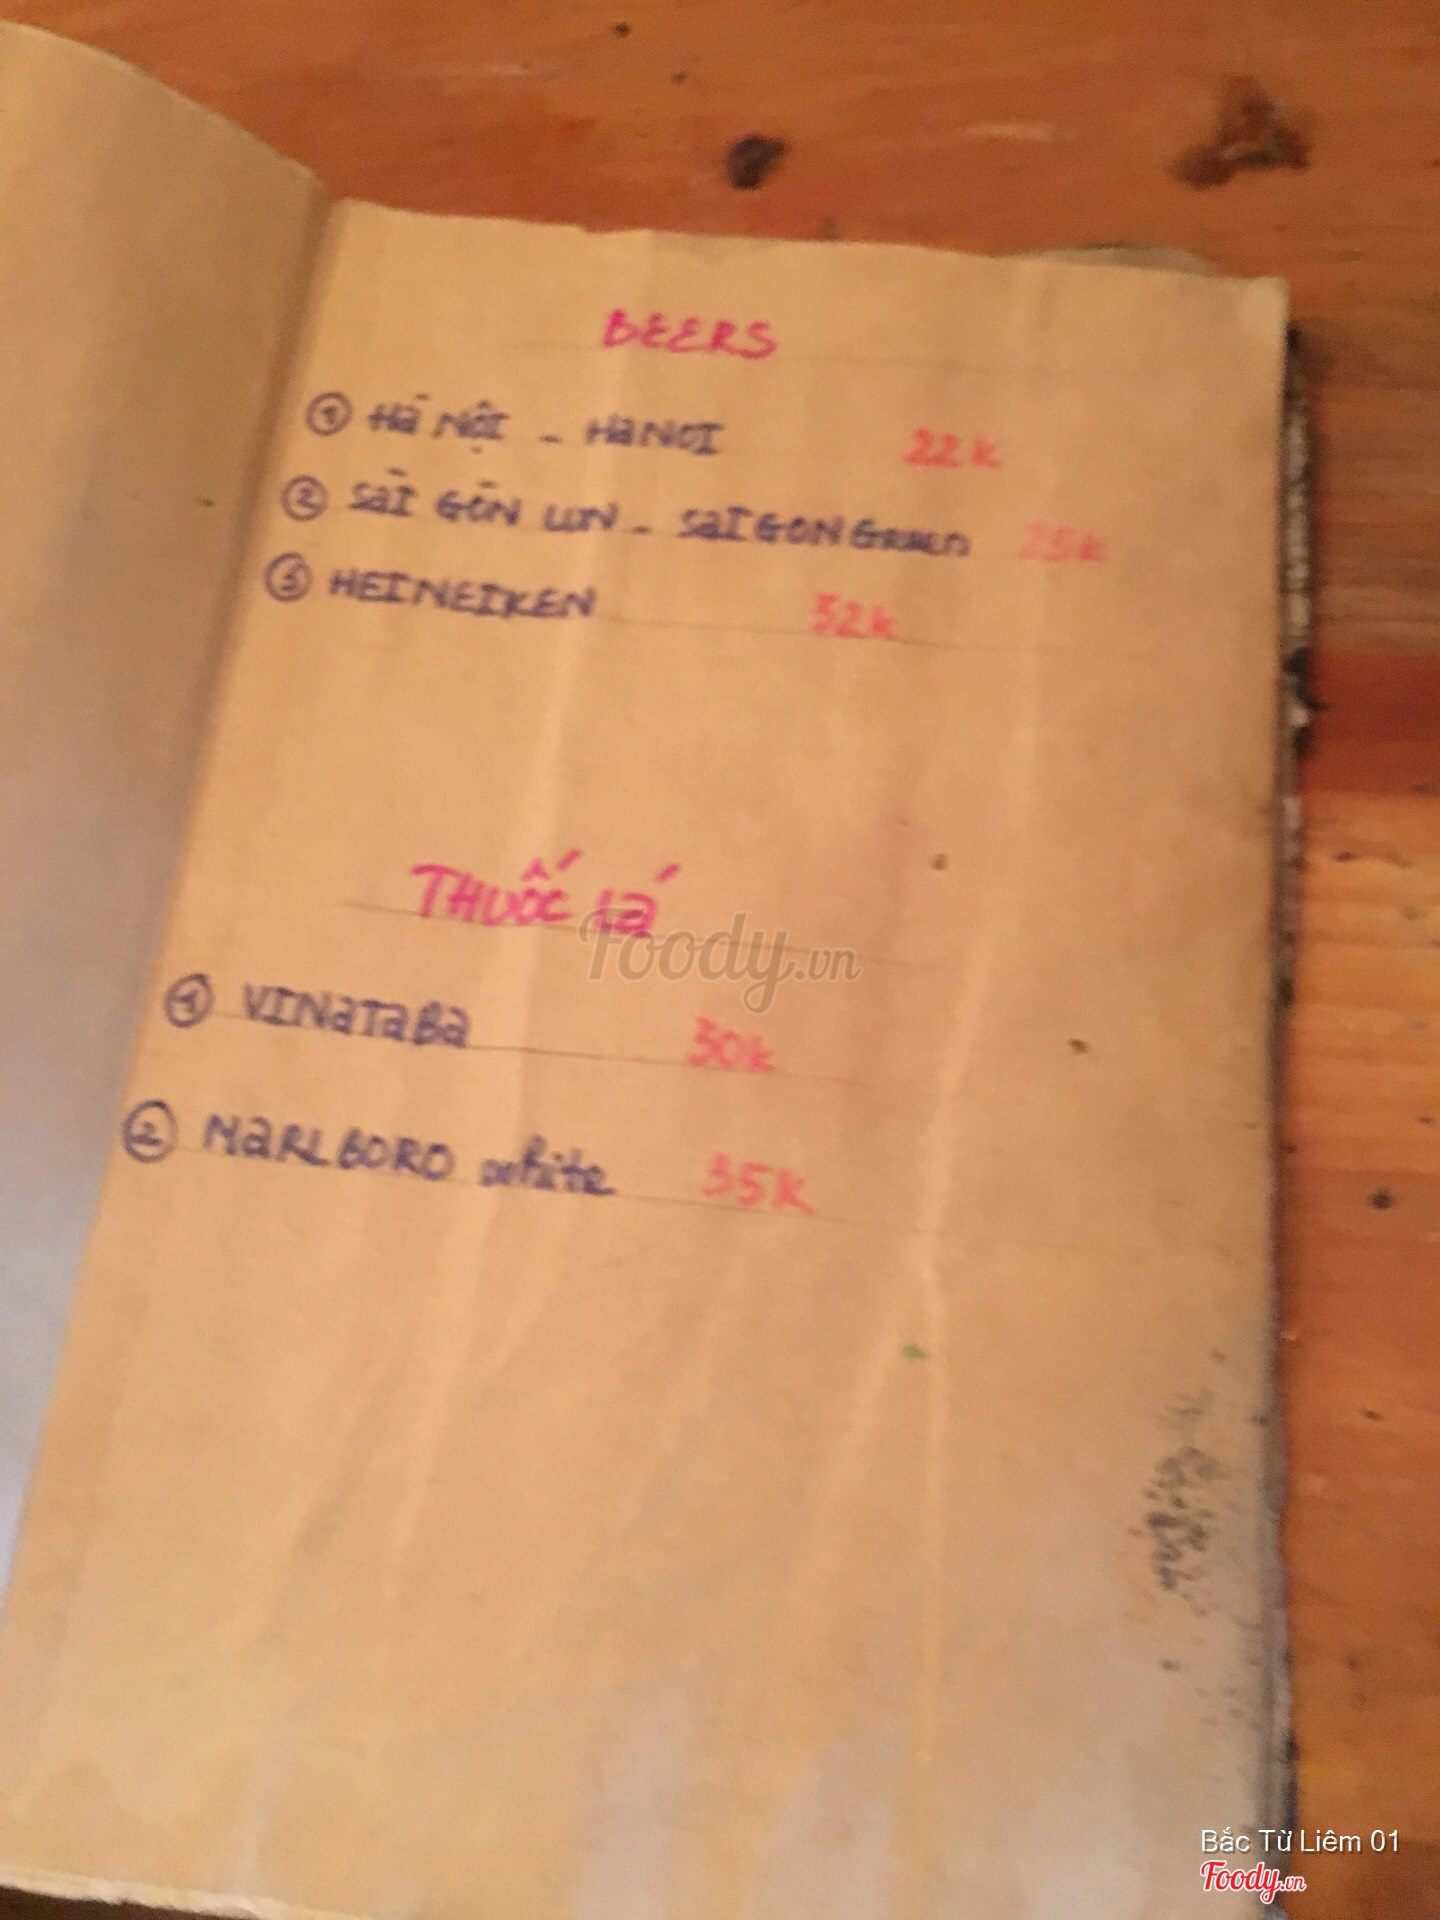 BEERS
① Hà Nội - HANOI 22k
② SÀI GÒN LÙN - SAIGON Green 25k
③ HEINEIKEN 32k
THUỐC Lá
Foody.vn
① VINATABA 30k
② MARLBORO white 35k
Bắc Từ Liêm 01
Foody.vn